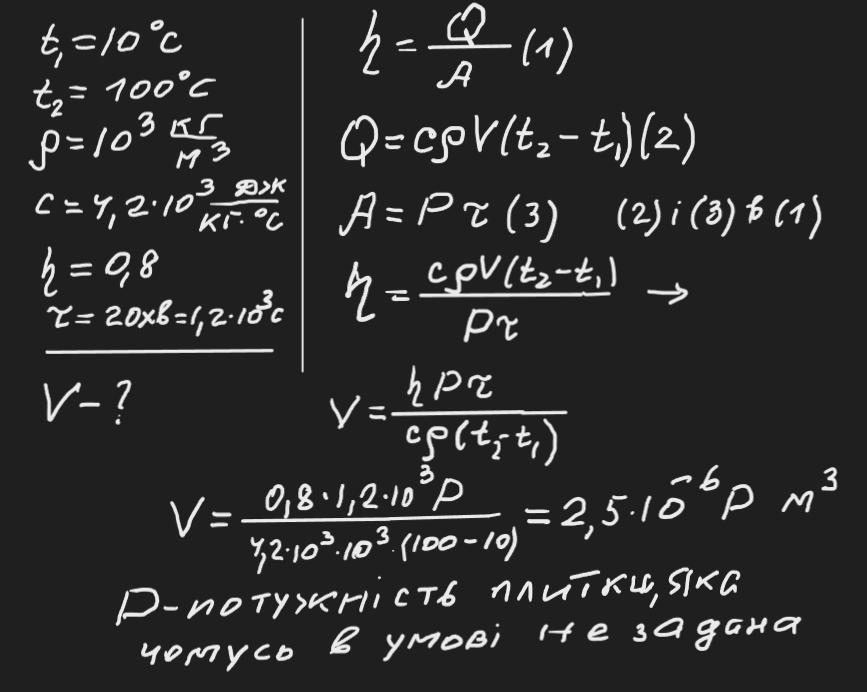 t₁=10°C
t₂= 100°C
ρ=10³ кг/м³
c=4,2·10³ Дж/кг·°C
η=0,8
τ=20хв=1,2·10³с
V-?
η=Q/A (1)
Q=cρV(t₂-t₁)(2)
A=Pτ(3) (2)і(3)в(1)
η=cρV(t₂-t₁)/Pτ →
V=ηPτ/cρ(t₂-t₁)
V=0,8·1,2·10³P/4,2·10³·10³·(100-10)=2,5·10⁻⁶P м³
P-потужність плитки, яка
чомусь в умові не задана